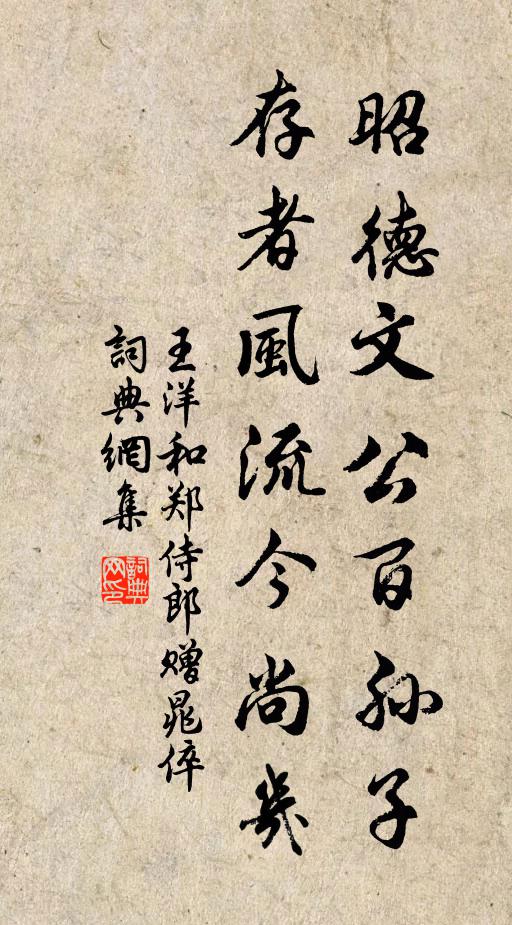 昭德文公百孙子
存者風流今尚幾
王洋和郑侍郎赠晁倅
詞典網集
詞典网印